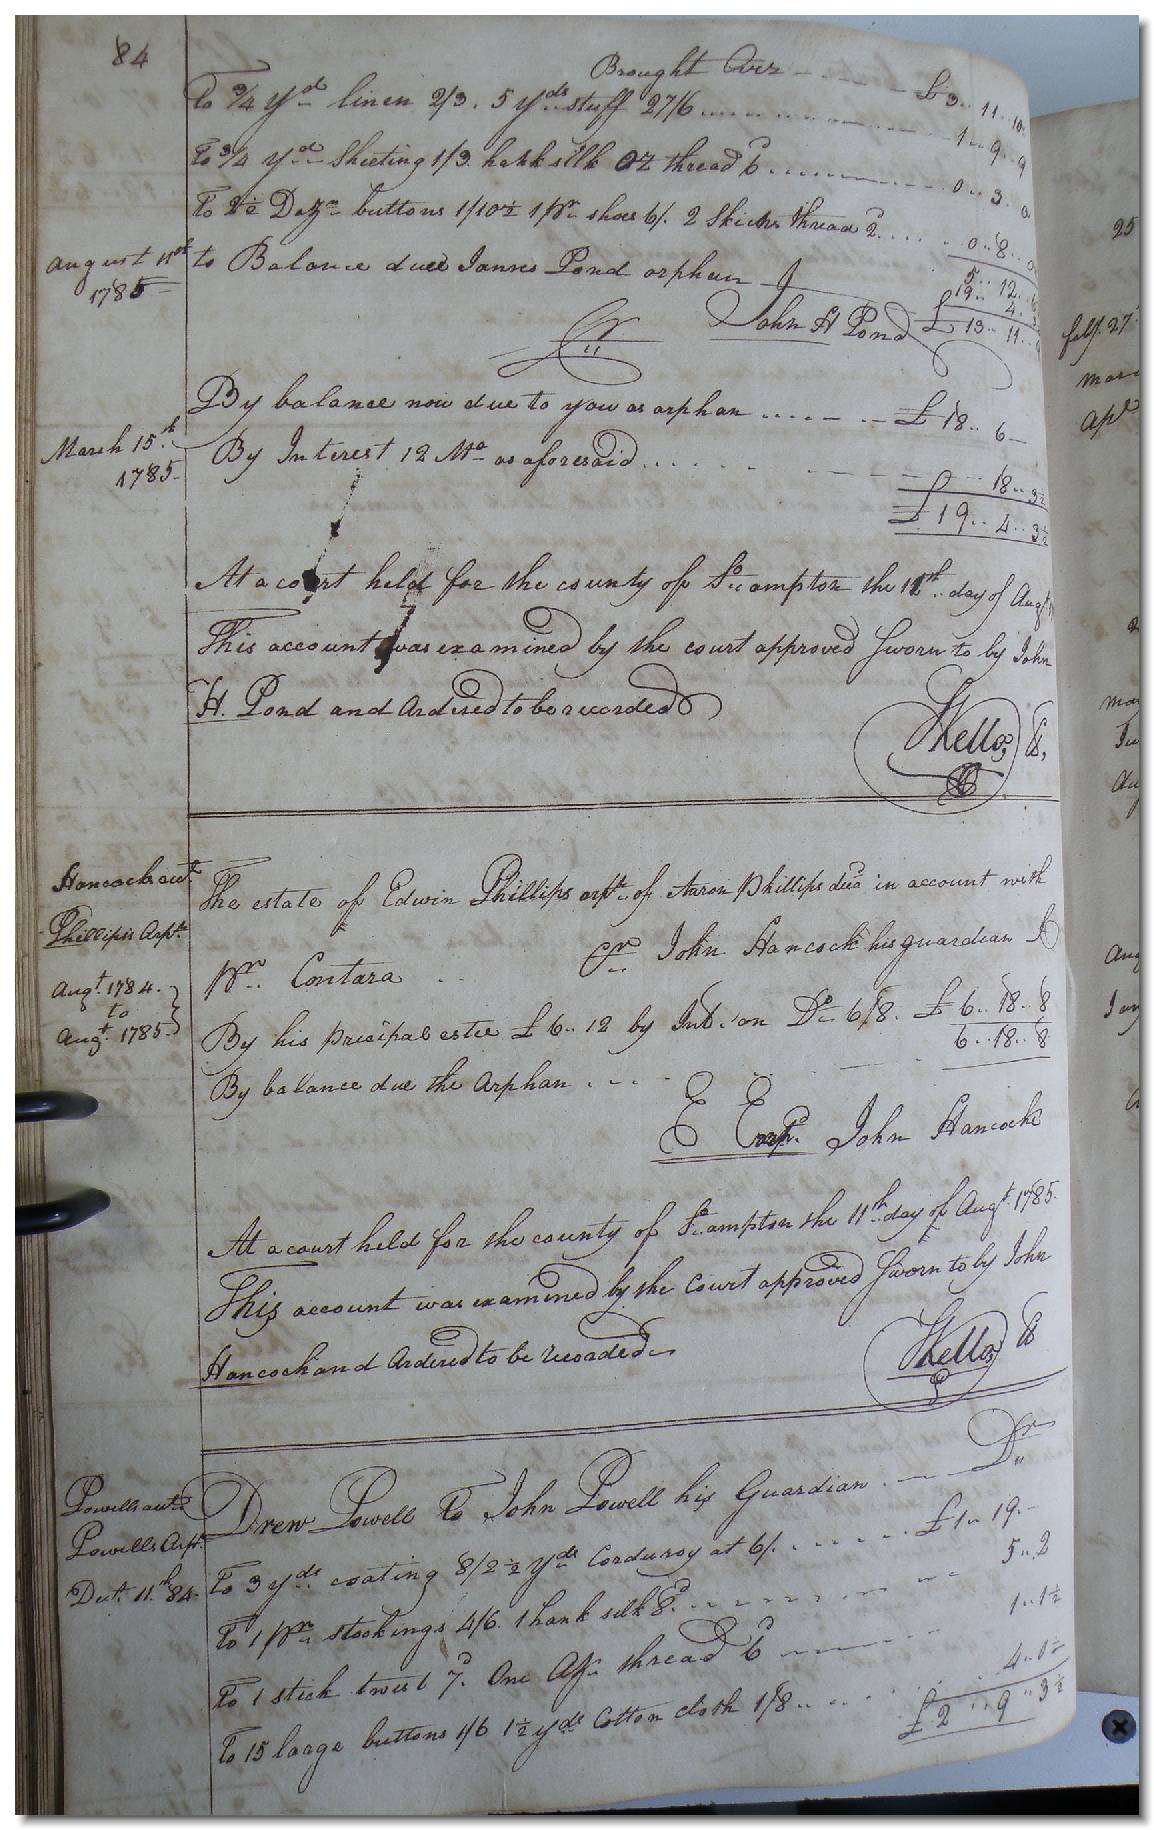 84
Brought Over £3 .. 11 .. 10
To 3/4 yd linen 2/3. 5 yds stuff 27/6 1 .. 9 .. 9
To 3/4 yd Sheeting 1/3. hank silk oz thread 6d 0 .. 3 .. 0
To 2½ Dozn buttons 1/10½ 1 pr shoes 6/. 2 Skiens thread 2d 0 .. 8 .. 0
5 .. 12 ..
August 11th to Balance due James Pond orphan 19 .. 4 ..
1785
John H Pond £ 13 .. 11 ..
Cr
By balance now due to you as orphan £18 .. 6 —
March 15th
1785
By Interest 12 Mo as aforesaid 18 .. 3½
£ 19 .. 4 .. 3½
At a court held for the county of So.ampton the 11th day of Augt
This account was examined by the court approved Sworn to by John
H. Pond and Ordered to be recorded
Kello
Hancocks acct
Phillips's Orpt.
Augt. 1784.
to
Augt. 1785
The estate of Edwin Phillips orpt. of Aaron Phillips decd in account with
Pr. Contara Cr John Hancock his guardian
By his principal estee £ 6 .. 12 by Int. on Do 6/8. £ 6 .. 18 .. 8
6 .. 18 .. 8
By balance due the Orphan
E Excepd. John Hancock
At a court held for the county of So.ampton the 11th day of Augt. 1785.
This account was examined by the Court approved Sworn to by John
Hancock and Ordered to be recorded
Kello
Powells acct
Powells Orpt.
Dect. 11th 84
Drew Powell To John Powell his Guardian Dr
To 3 yds coating 8/ 2½ yds Corduroy at 6/. £1 .. 19 —
To 1 pr stockings 4/6. 1 hank silk 8d 5 .. 2
To 1 stick twist 7d. One thread 6d 1 .. 1½
To 15 large buttons 1/6 1½ yds Cotton cloth 1/8 4 .. 0
£2 .. 9 .. 3½
25